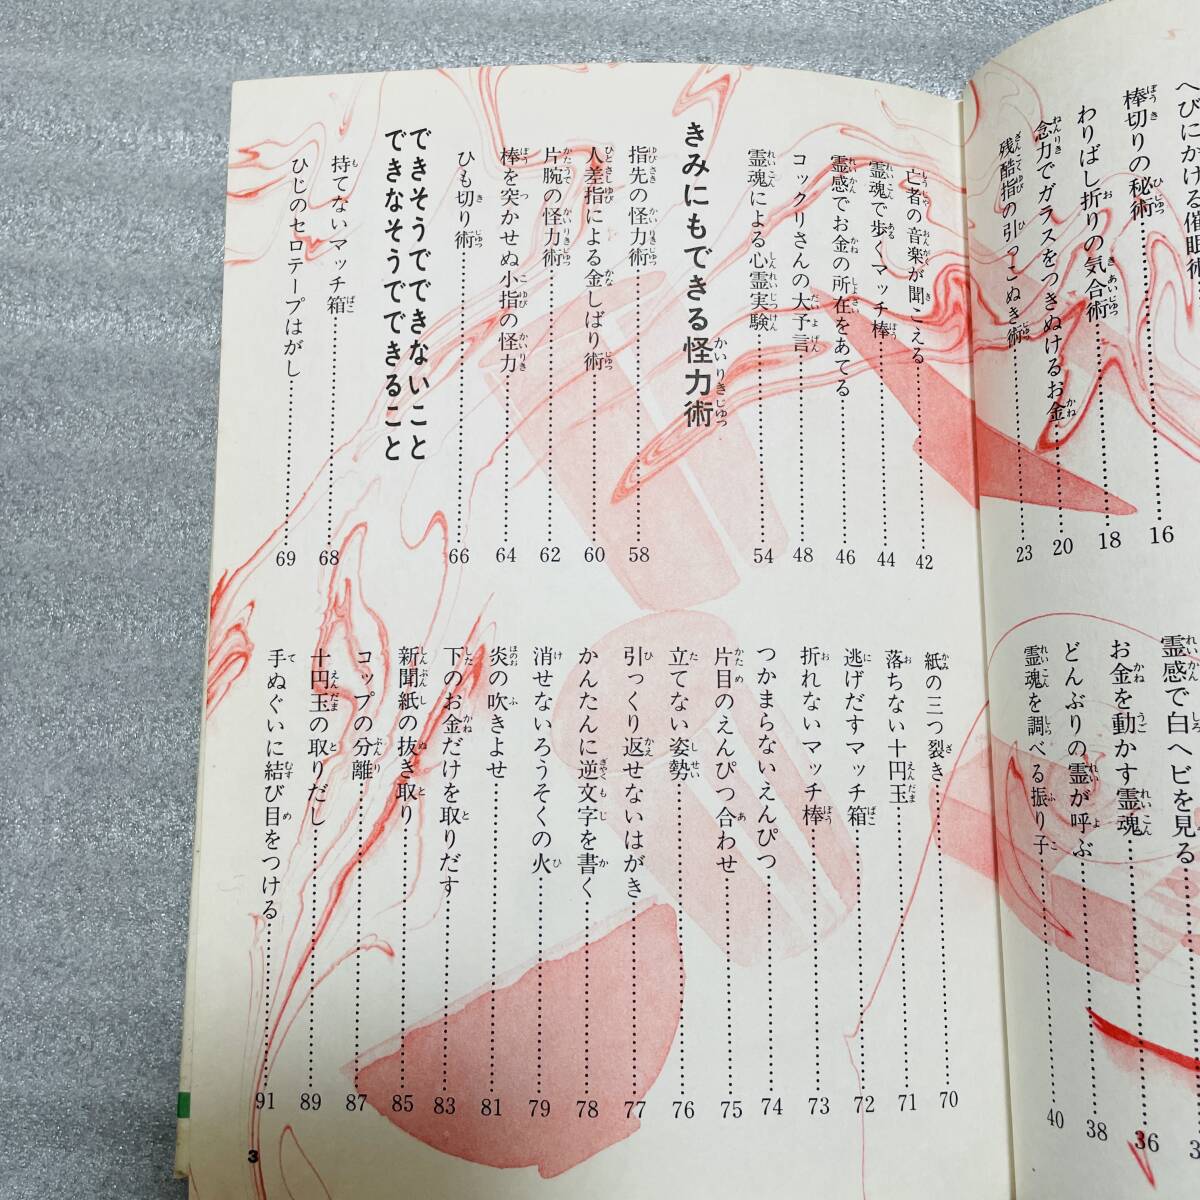 へびにかける催眠術
棒切りの秘術……16
わりばし折りの気合術……18
念力でガラスをつきぬけるお金……20
残酷指の引っこぬき術……23
霊感で白ヘビを見る
お金を動かす霊魂……36
どんぶりの霊が呼ぶ……38
霊魂を調べる振り子……40
亡者の音楽が聞こえる……42
霊魂で歩くマッチ棒……44
霊感でお金の所在をあてる……46
コックリさんの大予言……48
霊魂による心霊実験……54
きみにもできる怪力術
指先の怪力術……58
人差指による金しばり術……60
片腕の怪力術……62
棒を突かせぬ小指の怪力……64
ひも切り術……66
できそうでできないこと
できなそうでできること
持てないマッチ箱……68
ひじのセロテープはがし……69
紙の三つ裂き……70
落ちない十円玉……71
逃げだすマッチ箱……72
折れないマッチ棒……73
つかまらないえんぴつ……74
片目のえんぴつ合わせ……75
立てない姿勢……76
引っくり返せないはがき……77
かんたんに逆文字を書く……78
消せないろうそくの火……79
炎の吹きよせ……81
下のお金だけを取りだす……83
新聞紙の抜き取り……85
コップの分離……87
十円玉の取りだし……89
手ぬぐいに結び目をつける……91
3